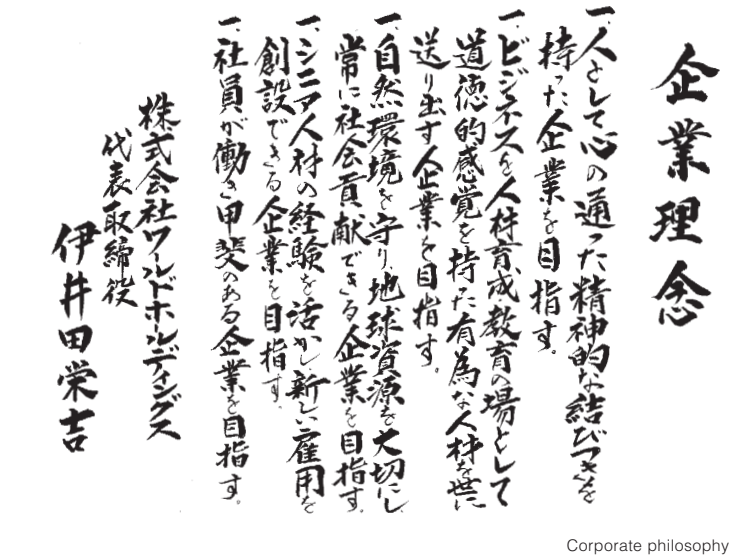 企業理念
一、人として心の通った精神的な結びつきを
持った企業を目指す。
一、ビジネスを人材育成、教育の場として
道徳的感覚を持った有為な人材を世に
送り出す人企業を目指す。
一、自然環境を守り、地球資源を大切にし
常に社会貢献できる企業を目指す。
一、シニア人材の経験を活かし、新しい雇用を
創設できる企業を目指す。
一、社員が働き甲斐のある企業を目指す。
株式会社ワールドホールディングス
代表取締役
伊井田栄吉
Corporate philosophy